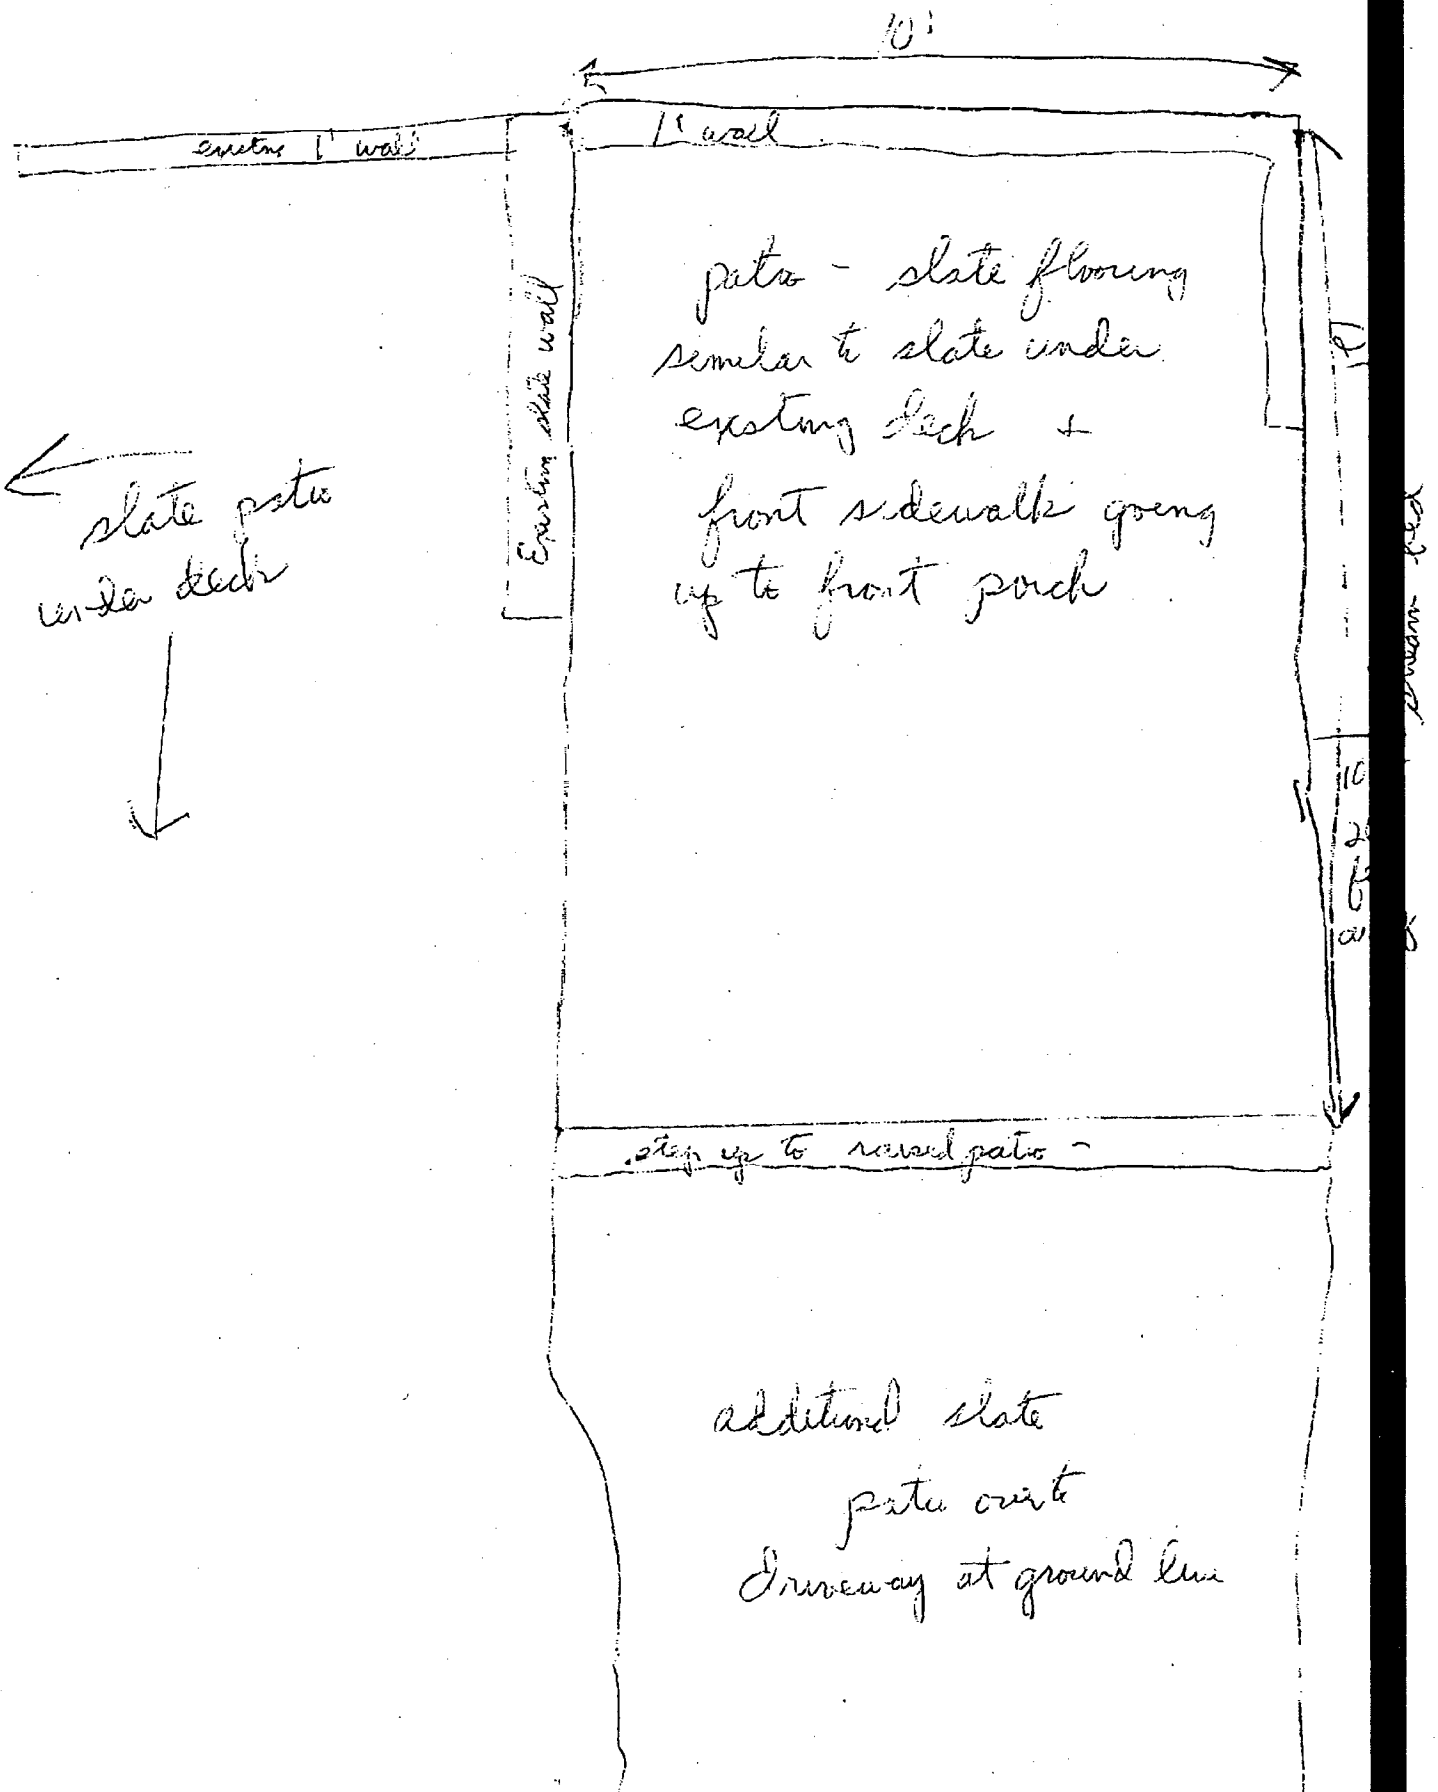 10'
existing 1' wall
1' wall
patio - slate flooring
similar to slate under
existing deck +
front sidewalk going
up to front porch
Existing slate wall
slate patio
under deck
10
step up to raised patio -
additional slate
patio over to
driveway at ground line